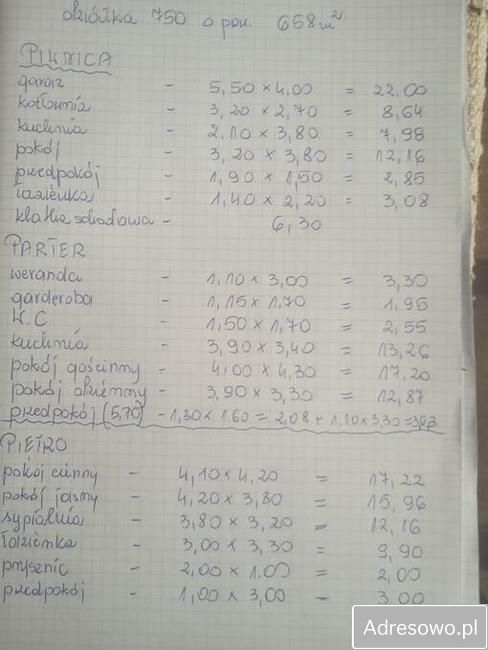 działka 750 o pow. 658 m²
PIWNICA
garaż - 5,50 x 4,00 = 22,00
kotłownia - 3,20 x 2,70 = 8,64
kuchnia - 2,10 x 3,80 = 7,98
pokój - 3,20 x 3,80 = 12,16
przedpokój - 1,90 x 1,50 = 2,85
łazienka - 1,40 x 2,20 = 3,08
klatka schodowa - 6,30
PARTER
weranda - 1,10 x 3,00 = 3,30
garderoba - 1,15 x 1,70 = 1,95
W.C - 1,50 x 1,70 = 2,55
kuchnia - 3,90 x 3,40 = 13,26
pokój gościnny - 4,00 x 4,30 = 17,20
pokój dzienny - 3,90 x 3,30 = 12,87
przedpokój (5,70) - 1,30 x 1.60 = 2,08 + 1.10 x 3,30 = 3,63
PIĘTRO
pokój ciemny - 4,10 x 4,20 = 17,22
pokój jasny - 4,20 x 3,80 = 15,96
sypialnia - 3,80 x 3,20 - 12,16
łazienka - 3,00 x 3,30 = 9,90
prysznic - 2,00 x 1.00 = 2,00
przedpokój - 1,00 x 3,00 - 3,00
Adresowo.pl